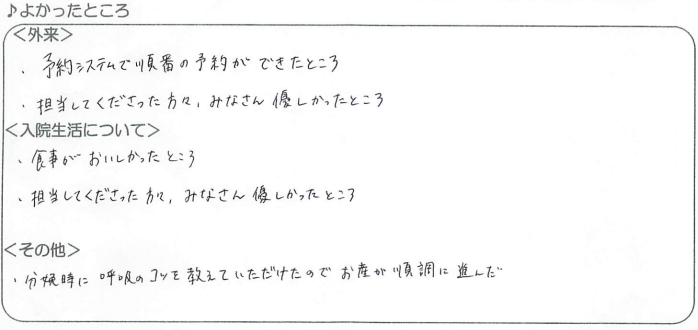 ♪よかったところ
＜外来＞
・予約システムで順番の予約ができたところ
・担当してくださった方々，みなさん優しかったところ
＜入院生活について＞
・食事がおいしかったところ
・担当してくださった方々，みなさん優しかったところ
＜その他＞
・分娩時に呼吸のコツを教えていただけたのでお産が順調に進んだ